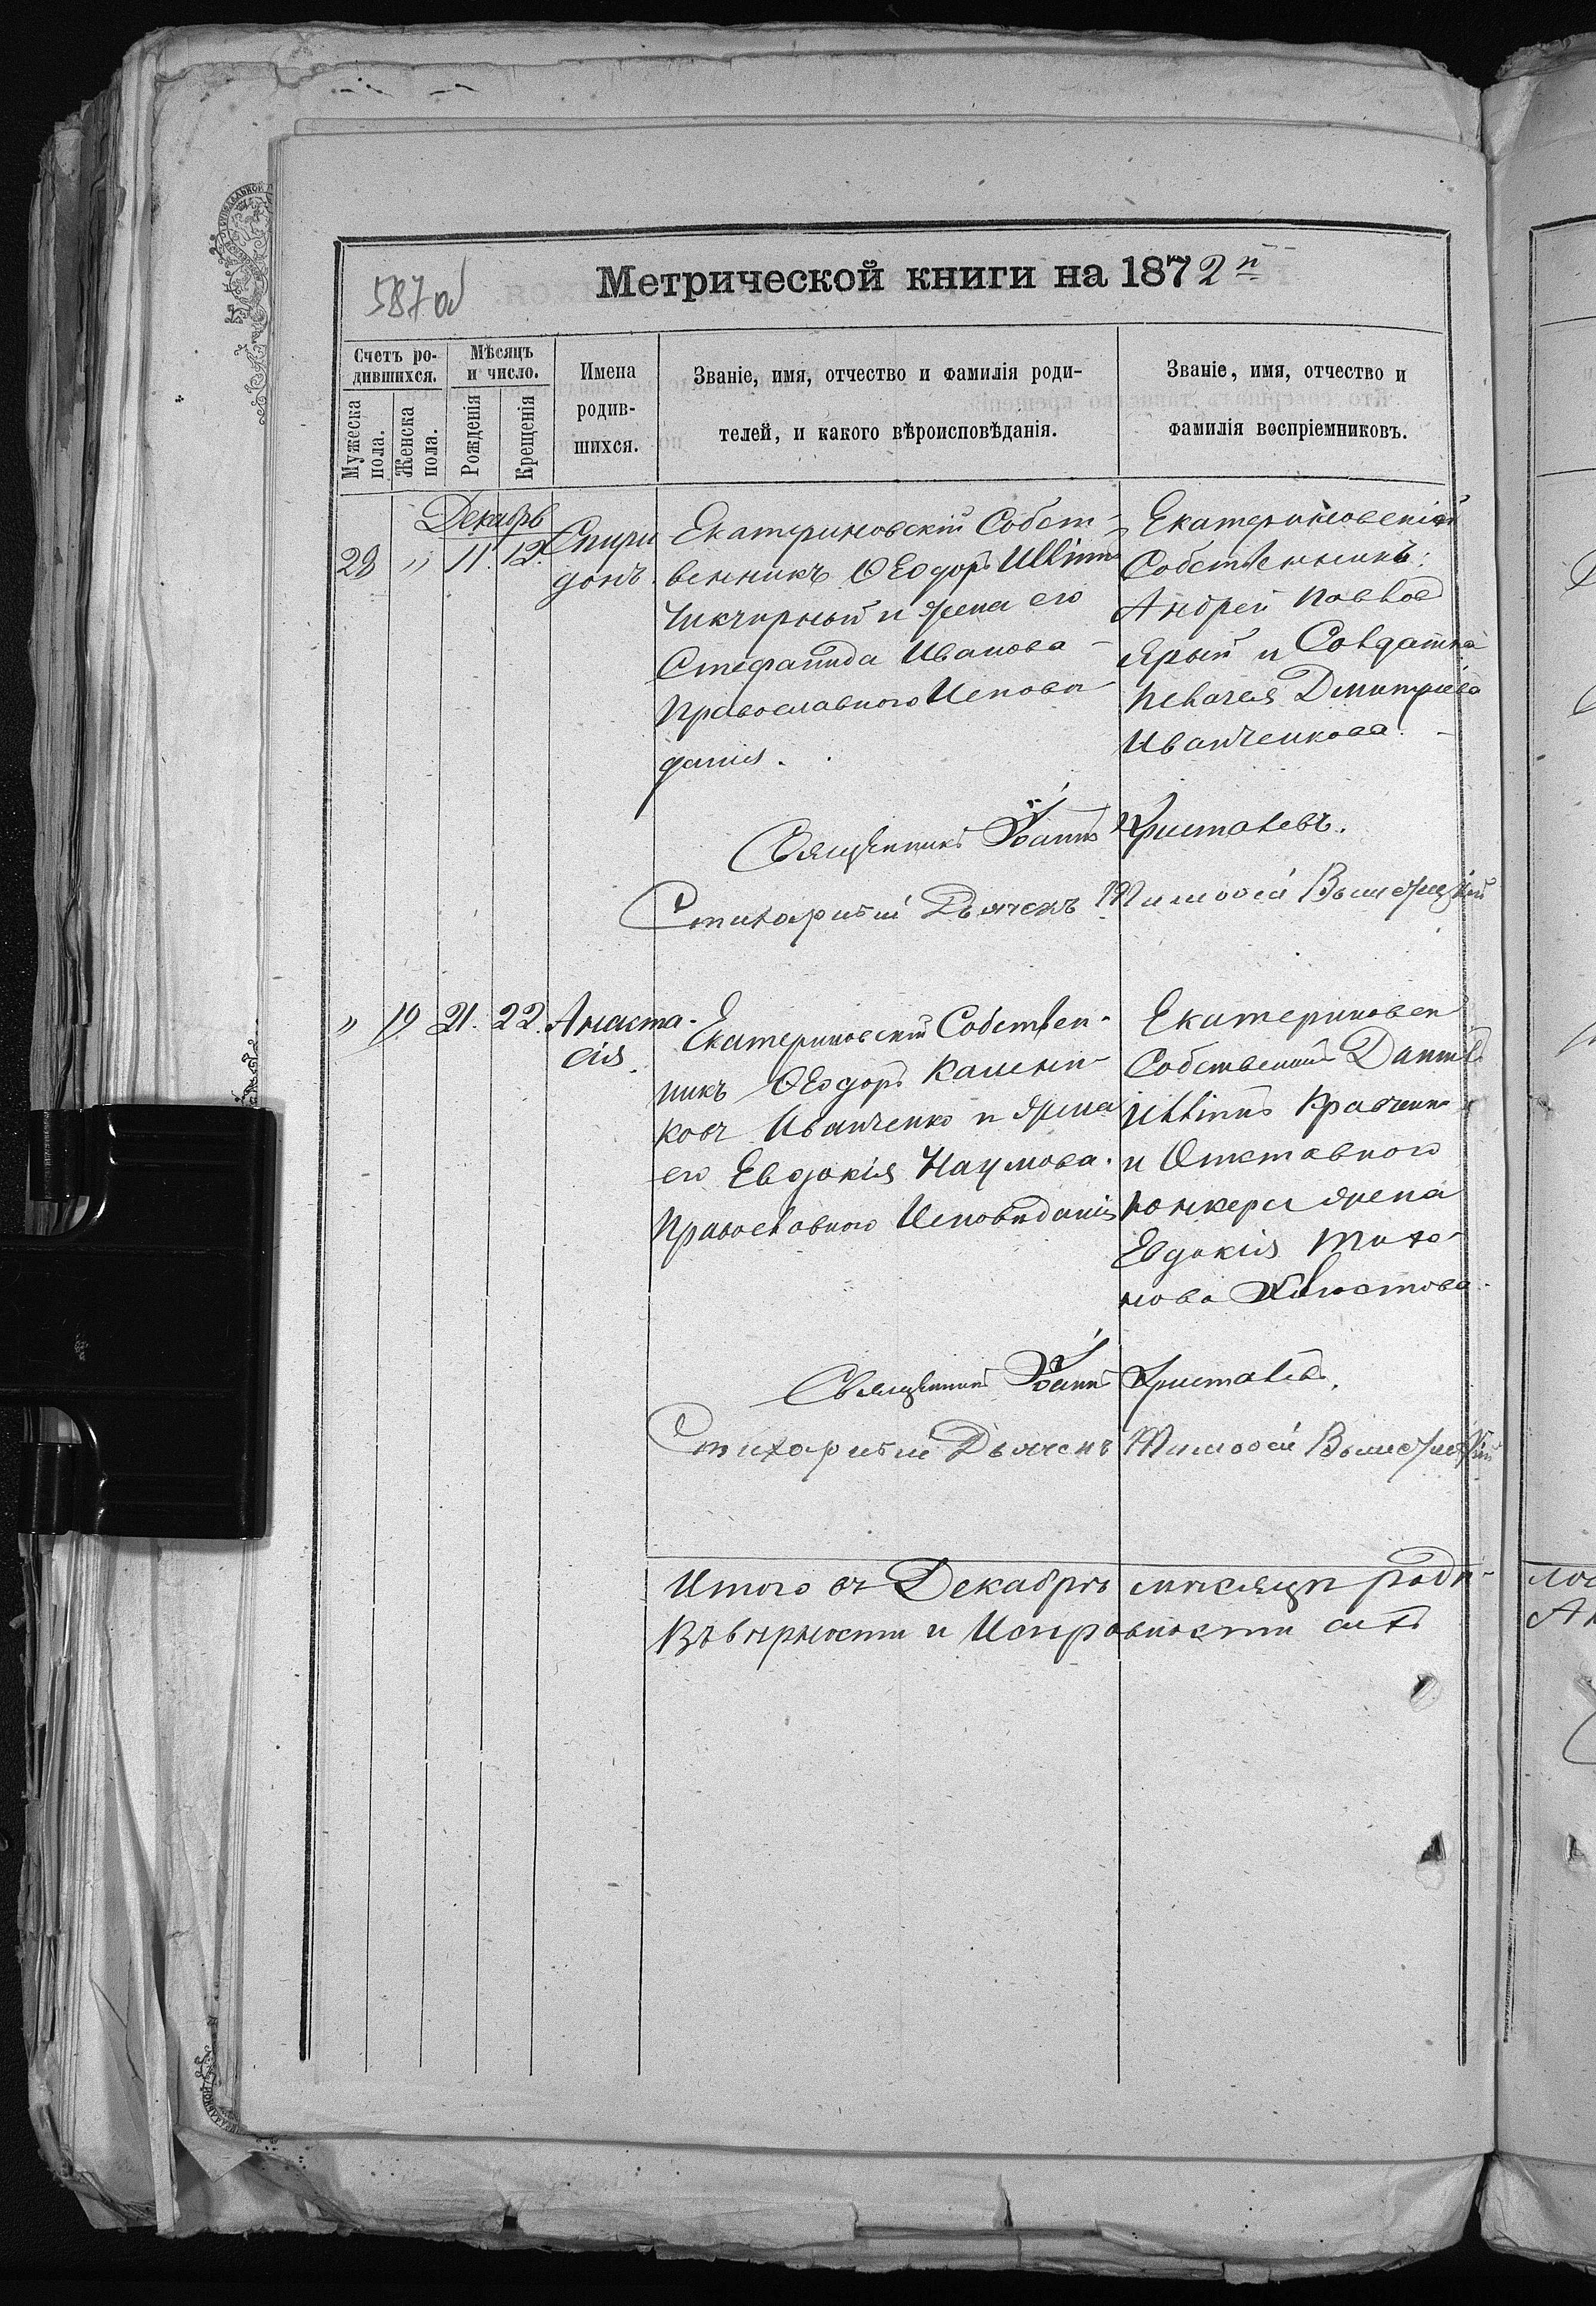 587 об
Метрической книги на 1872 й
Счетъ ро-
дившихся.
Мужеска
пола.
Женска
пола.
Мѣсяцъ
и число.
Рожденія
Крещенія
Имена
родив-
шихся.
Званіе, имя, отчество и фамилія роди-
телей, и какого вѣроисповѣданія.
Званіе, имя, отчество и
фамилія воспріемниковъ.
Декабрь
28 " 11. 12.
Спири
донъ.
Екатериновскій Собст-
венникъ Ѳеодоръ Иллинъ
Чикчирный и жена его
Стефанида Иванова
Православнаго Испове
данія.
Екатериновскій
Собственникъ:
Андрей Павлов
Ярый и Солдатка
Пелагея Дмитриева
Иванченкова.
Священникъ Іоаннъ Кристалевъ.
Стихарный Дьячекъ Тимоѳей
" 19 21. 22.
Анаста-
сія.
Екатериновскій Собствен-
никъ Ѳеодоръ Калени-
ковъ Иванченко и жена
его Евдокія Наумова.
Православнаго Исповѣданія
Екатериновск
Собственникъ Даніилъ
Иллинъ Кравченко
и Отставного
юнкера жена
Евдокія Тихо-
нова Хвостова.
Священникъ Іоаннъ Кристалевъ.
Стихарный Дьячекъ Тимоѳей
Итого въ Декабрѣ мѣсяцѣ роди-
Въ вѣрности и Исправности сихъ